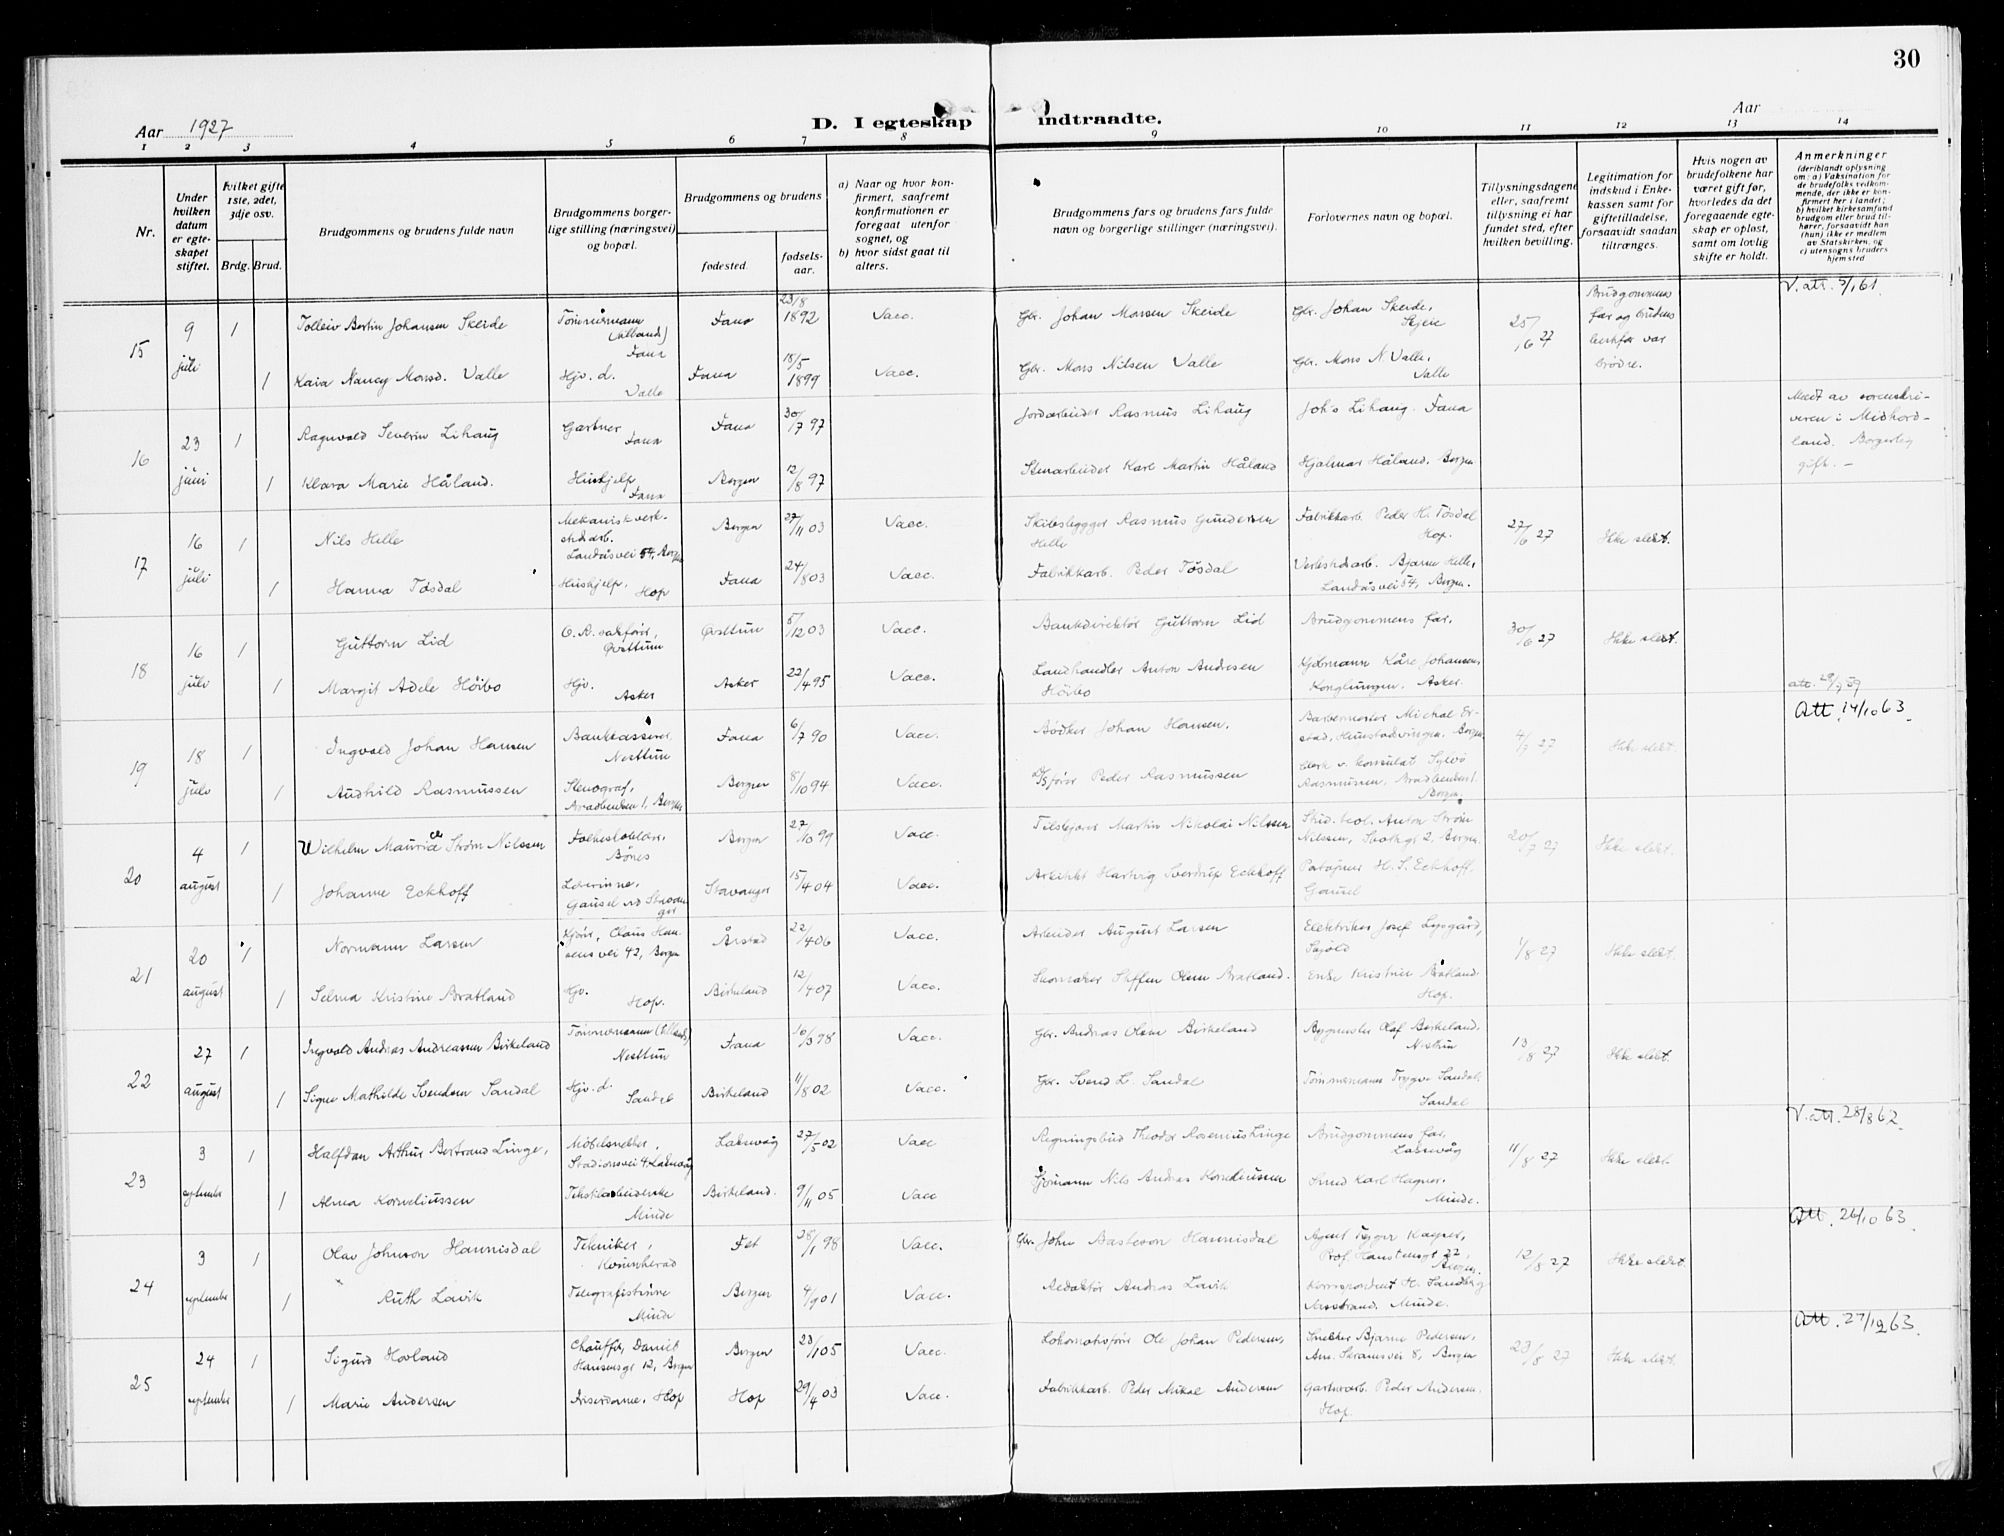 30
Aar 1927
D. I egteskap indtraadte.
Aar
1 2 3 4 5 6 7 8 9 10 11 12 13 14
Nr.
Under hvilken datum er egteskapet stiftet.
Hvilket gifte 1ste, 2det, 3dje osv.
Brdg. Brud.
Brudgommens og brudens fulde navn
Brudgommens borgerlige stilling (næringsvei) og bopæl.
Brudgommens og brudens
fødested.
fødselsaar.
a) Naar og hvor konfirmert, saafremt konfirmationen er foregaat utenfor sognet, og
b) hvor sidst gaat til alters.
Brudgommens fars og brudens fars fulde navn og borgerlige stillinger (næringsvei).
Forlovernes navn og bopæl.
Tillysningsdagene eller, saafremt tillysning ei har fundet sted, efter hvilken bevilling.
Legitimation for indskud i Enkekassen samt for giftetilladelse, forsaavidt saadan tiltrænges.
Hvis nogen av brudefolkene har været gift før, hvorledes da det foregaaende egteskap er opløst, samt om lovlig skifte er holdt.
Anmerkninger
(deriblandt oplysning om: a) Vaksination for de brudefolks vedkommende, der ikke er konfirmert her i landet; b) hvilket kirkesamfund brudgom eller brud tilhører, forsaavidt han (hun) ikke er medlem av Statskirken, og c) utensogns bruders hjemsted
15
9 juli
1 Tolleiv Bertin Johansen Skeide
Tømmermann Fana
Fana 23/8 1892 Vacc.
Gbr. Johan Monsen Skeide
Gbr. Johan Skeide,
25/6 27
Brudgommens far og brudens var brødre.
1 Kaia Nancy Monsd. Valle
Hjv. d. Valle
Fana 18/5 1899 Vacc.
Gbr. Mons Nilsen Valle
Gbr. Mons N Valle, Valle
16
23 juni
1 Ragnvald Severin Lihaug
Gartner Fana
Fana 30/7 97
Jordarbeider Rasmus Lihaug
Johs Lihaug. Fana
Meldt av sorenskriveren i Midhordland. Borgerlig gift. –
1 Klara Marie Håland.
Hushjelp Fana
Bergen 12/8 97
Stenarbeider Karl Martin Håland
Hjalmar Håland, Bergen
17
16 juli
1 Nils Helle
Mekanisk verkstedarb. Landåsvei 54, Bergen
Bergen 27/11 03 Vacc.
Skibsbygger Rasmus Gundersen Helle
Fabrikkarb. Peder H. Tøsdal Hop.
27/6 27
Ikke slekt.
1 Hanna Tøsdal
Hushjelp, Hop
Fana 24/8 03 Vacc.
Fabrikkarb. Peder Tøsdal
Verkstedarb. Bjarne Helle, Landåsvei 54, Bergen.
18
16 juli
1 Guttorm Lid
O. R. sakfører, Øvsttun
Øvsttun 5/12 03 Vacc.
Bankdirektør Guttorm Lid
Brudgommens far,
30/6 27
Ikke slekt.
1 Margit Adele Høibo
Hjv. Asker
Asker 22/4 95 Vacc.
Landhandler Anton Andresen Høibo
Kjøbmann Kåre Johansen, Konglungen, Asker.
19
18 juli
1 Ingvald Johan Hansen
Bankkasserer, Nesttun
Fana 6/7 90 Vacc.
Bødker Johan Hansen.
Barbermester Michal
4/7 27
Ikke slekt.
Att. 14/10 63.
1 Audhild Rasmussen
Stenograf, Bradbenken 1, Bergen
Bergen 8/10 94 Vacc.
Peder Rasmussen
Rasmussen, Bradbenken 1 Bergen.
20
4 august
1 Wilhelm Maurice Strøm Nilssen
Bønes
Bergen 27/10 99 Vacc.
Martin Nikolai Nilssen
Stud. teol. Anton Strøm Nilssen, 2, Bergen.
20/7 27
Ikke slekt.
1 Johanne Eckhoff
Lærerinne, Gausel v/d Stavanger
Stavanger 15/4 04 Vacc.
Arkitekt Hartvig Sverdrup Eckhoff
H. S. Eckhoff, Gausel
21
20 august
1 Normann Larsen
Claus Hansensvei 42, Bergen
Årstad 22/4 06 Vacc.
Arbeider August Larsen
Elektriker Josef Lysgård, Skjold
1/8 27
Ikke slekt.
1 Selma Kristine Bratland
Hjv. Hop.
Birkeland 12/4 07 Vacc.
Skomaker Steffen Olsen Bratland.
Enke Kristine Bratland. Hop.
22
27 august
1 Ingvald Andreas Andreassen Birkeland
Tømmermann Nesttun
Fana 10/3 98 Vacc.
Gbr. Andreas Olsen Birkeland
Bygmester Olaf Birkeland, Nesttun
13/8 27
Ikke slekt.
1 Signe Mathilde Svendsen Sandal
Hjv. d. Sandal
Birkeland 11/8 02 Vacc.
Gbr. Svend L. Sandal
Tømmermann Trygve Sandal. Sandal
23
3 september
1 Halfdan Arthur Bertrand Linge,
Møbelsnekker, Stadionsvei 4, Laksevåg
Laksevåg 27/5 02 Vacc
Regningsbud Theodor Rosenius Linge
Brudgommens far, Laksevåg
11/8 27
Ikke slekt.
V. att. 28/8 62.
1 Alma Korneliussen
Tekstilarbeiderske Minde
Birkeland. 9/11 05 Vacc
Sjømann Nils Andreas Korneliussen
Smed Karl Hagner, Minde.
24
3 september
1 Olav Johnson Hannisdal
Tekniker, Kvinnherad
Fet 28/1 98 Vacc.
Gbr. John Basteson Hannisdal
Agent Trygve Kasper, Prof. Hanstensgt 22, Bergen.
12/8 27
Ikke slekt.
Att. 26/10 63.
1 Ruth Lavik
Telegrafistinne Minde
Bergen 4/9 01 Vacc.
Redaktør Andreas Lavik
Korrespondent H. Sandberg Minde.
25
24 september
1 Sigurd Hovland
Chauffør, Daniel Hansensgt 12, Bergen
Bergen 23/1 05 Vacc.
Lokomotivfører Ole Johan Pedersen,
Snekker Bjarne Pedersen, Ans. Skramsvei 8, Bergen
23/8 27
Ikke slekt.
Att. 27/12 63.
1 Marie Andersen
Friserdame, Hop
Hop 29/4 03 Vacc.
Fabrikkarb. Peder Mikal Andersen
Gartnerarb. Peder Andersen. Hop.